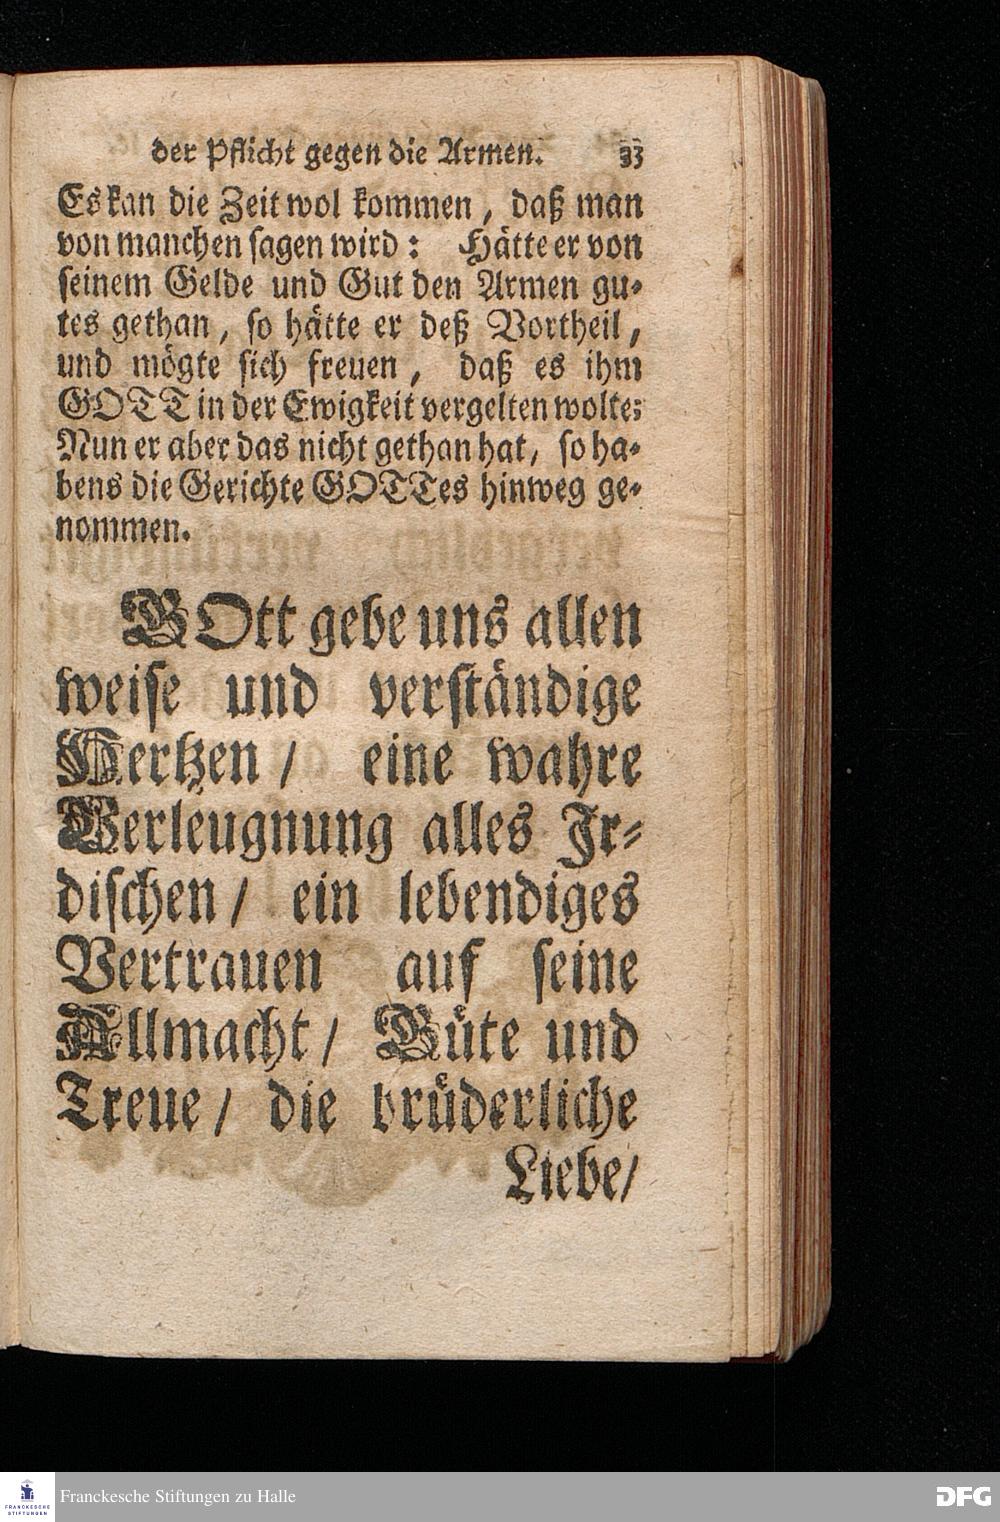 der Pflicht gegen die Armen. 33
Es kan die Zeit wol kommen, daß man
von manchen sagen wird: Hätte er von
seinem Gelde und Gut den Armen gu-
tes gethan, so hätte er deß Vortheil,
und mögte sich freuen, daß es ihm
GOTT in der Ewigkeit vergelten wolte:
Nun er aber das nicht gethan hat, so ha-
bens die Gerichte GOTTes hinweg ge-
nommen.
GOtt gebe uns allen
weise und verständige
Hertzen / eine wahre
Verleugnung alles Ir-
dischen / ein lebendiges
Vertrauen auf seine
Allmacht / Güte und
Treue / die brüderliche
Liebe /
FRANCKESCHE
STIFTUNGEN
Franckesche Stiftungen zu Halle
DFG